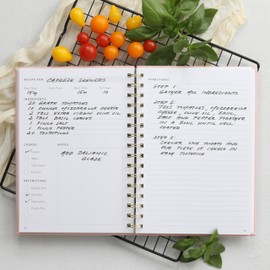 RECIPE FOR CAPRESE SKEWERS
INGREDIENTS
20 GRAPE TOMATOES
2 TBSP EXTRA VIRGIN OLIVE OIL
2 TBSP BASIL LEAVES
1 PINCH SALT
1 PINCH PEPPER
20 TOOTHPICKS
COURSE
NOTES
ADD BALSAMIC
GLAZE
DIRECTIONS
STEP 1
GATHER ALL INGREDIENTS
STEP 2
TOSS TOMATOES, MOZZARELLA
CHEESE, OLIVE OIL, BASIL,
SALT AND PEPPER TOGETHER
IN A BOWL UNTIL WELL
COATED
STEP 3
SKEWER ONE TOMATO AND
ONE PIECE OF CHEESE ON
EACH TOOTHPICK